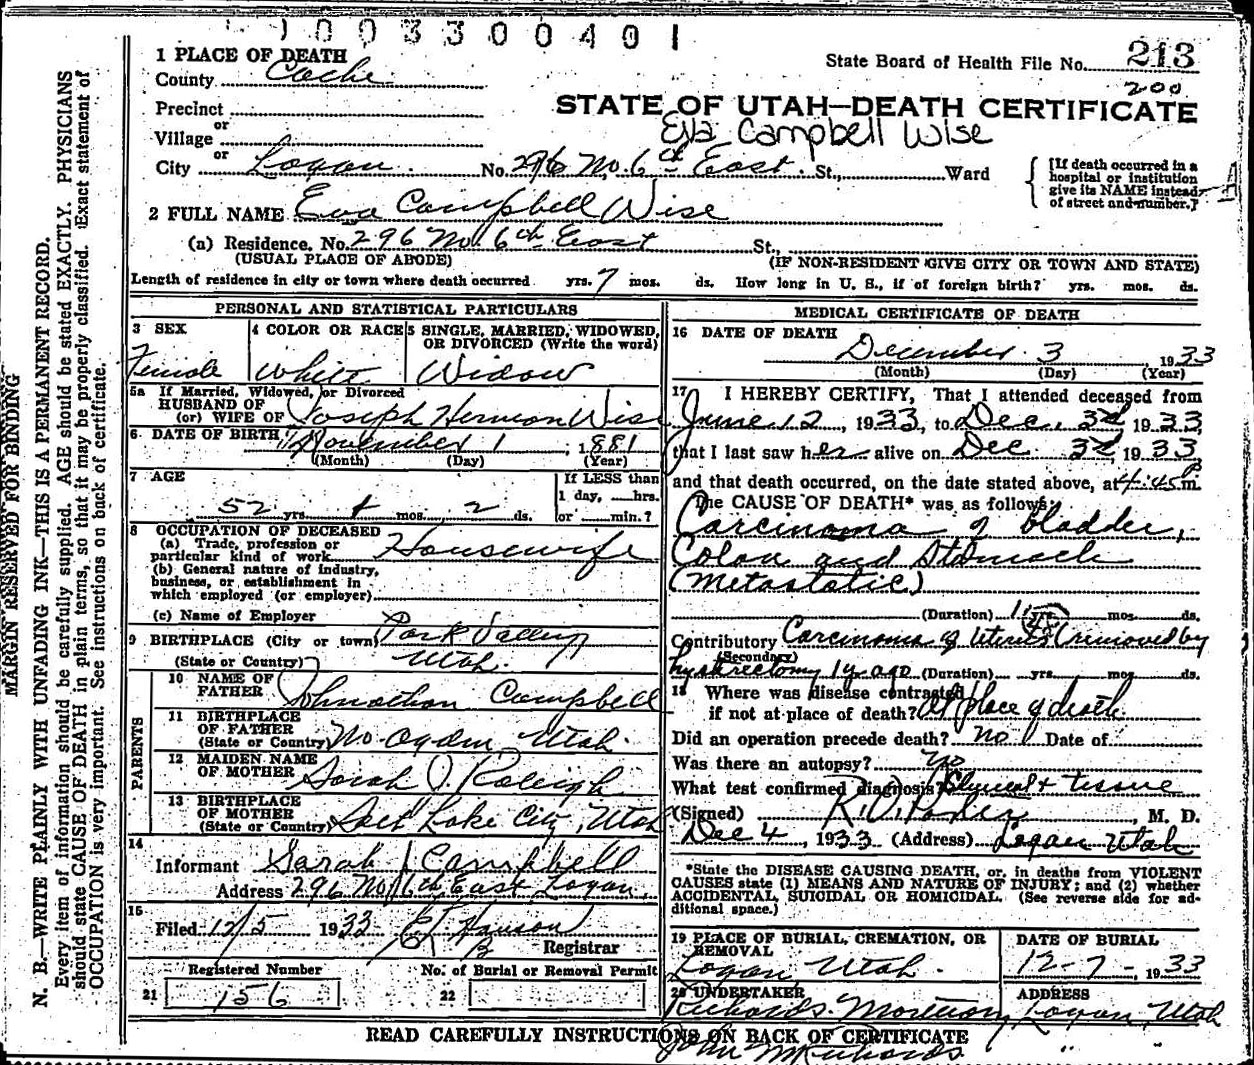 1003300401
1 PLACE OF DEATH
County Cache
State Board of Health File No. 213
200
Precinct
or
Village
STATE OF UTAH—DEATH CERTIFICATE
Eva Campbell Wise
or
City Logan. No. 296 No. 6th East. St., Ward
[If death occurred in a
hospital or institution
give its NAME instead
of street and number.]
2 FULL NAME Eva Campbell Wise
(a) Residence, No. 296 No. 6th East St.,
(USUAL PLACE OF ABODE) (IF NON-RESIDENT GIVE CITY OR TOWN AND STATE)
Length of residence in city or town where death occurred yrs. 7 mos. ds. How long in U. S., if of foreign birth? yrs. mos. ds.
PERSONAL AND STATISTICAL PARTICULARS
3 SEX
Female
4 COLOR OR RACE
White
5 SINGLE, MARRIED, WIDOWED,
OR DIVORCED (Write the word)
Widow
5a If Married, Widowed, or Divorced
HUSBAND OF
(or) WIFE OF Joseph Hermon Wise
6 DATE OF BIRTH November 1, 1881
(Month) (Day) (Year)
7 AGE
52 yrs. 1 mos. 2 ds.
If LESS than
1 day, hrs.
or min.?
8 OCCUPATION OF DECEASED
(a) Trade, profession or
particular kind of work Housewife
(b) General nature of industry,
business, or establishment in
which employed (or employer)
(c) Name of Employer
9 BIRTHPLACE (City or town) Park Valley
(State or Country) Utah.
PARENTS
10 NAME OF
FATHER Johnathan Campbell
11 BIRTHPLACE
OF FATHER
(State or Country) No. Ogden Utah.
12 MAIDEN NAME
OF MOTHER Sarah J. Raleigh
13 BIRTHPLACE
OF MOTHER
(State or Country) Salt Lake City, Utah
14
Informant Sarah J Campbell
Address 296 No 6th East Logan,
15
Filed 12/5 1933 Hanson
Registrar
Registered Number
21 156
No. of Burial or Removal Permit
22
MEDICAL CERTIFICATE OF DEATH
16 DATE OF DEATH
December 3 1933
(Month) (Day) (Year)
17 I HEREBY CERTIFY, That I attended deceased from
June 12, 1933, to Dec. 3d 1933,
that I last saw her alive on Dec 3d, 1933,
and that death occurred, on the date stated above, at 4:45 P m.
The CAUSE OF DEATH* was as follows:
Carcinoma of bladder,
Colon and Stomach
(Metastatic)
(Duration) 1 yrs. mos. ds.
Contributory Carcinoma of Uterus (removed by
(Secondary)
hysterectomy 1 y. ago (Duration) yrs. mos. ds.
18 Where was disease contracted
if not at place of death? At place of death
Did an operation precede death? no Date of
Was there an autopsy? no
What test confirmed diagnosis? Clinical & tissue
(Signed) , M. D.
Dec 4, 1933 (Address) Logan Utah
*State the DISEASE CAUSING DEATH, or, in deaths from VIOLENT
CAUSES state (1) MEANS AND NATURE OF INJURY; and (2) whether
ACCIDENTAL, SUICIDAL OR HOMICIDAL. (See reverse side for ad-
ditional space.)
19 PLACE OF BURIAL, CREMATION, OR
REMOVAL
Logan Utah.
DATE OF BURIAL
12-7-, 1933
20 UNDERTAKER
Richards Mortuary
ADDRESS
Logan, Utah
READ CAREFULLY INSTRUCTIONS ON BACK OF CERTIFICATE
John Richards
MARGIN RESERVED FOR BINDING
N. B.—WRITE PLAINLY WITH UNFADING INK—THIS IS A PERMANENT RECORD.
Every item of information should be carefully supplied. AGE should be stated EXACTLY. PHYSICIANS
should state CAUSE OF DEATH in plain terms, so that it may be properly classified. Exact statement of
OCCUPATION is very important. See instructions on back of certificate.